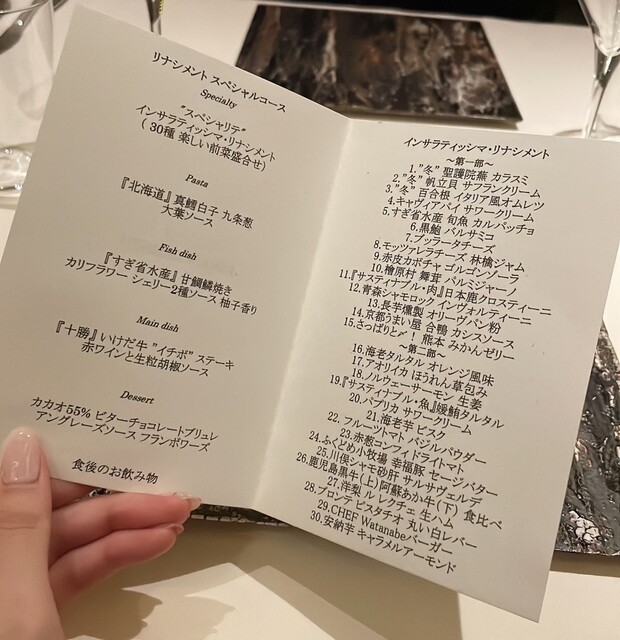 リナシメント スペシャルコース
Specialty
"スペシャリテ"
インサラティッシマ・リナシメント
( 30種 楽しい前菜盛合せ)
Pasta
『北海道』真鱈白子 九条葱
大葉ソース
Fish dish
『すぎ省水産』甘鯛鱗焼き
カリフラワー シェリー2種ソース 柚子香り
Main dish
『十勝』いけだ牛 "イチボ" ステーキ
赤ワインと生粒胡椒ソース
Dessert
カカオ55% ビターチョコレートブリュレ
アングレーズソース フランボワーズ
食後のお飲み物
インサラティッシマ・リナシメント
～第一部～
1."冬" 聖護院蕪 カラスミ
2."冬" 帆立貝 サフランクリーム
3."冬" 百合根 イタリア風オムレツ
4.キャヴィアパイ サワークリーム
5.すぎ省水産 旬魚 カルパッチョ
6.黒鮑 バルサミコ
7.ブッラータチーズ
8.モッツァレラチーズ 林檎ジャム
9.赤皮カボチャ ゴルゴンゾーラ
10.檜原村 舞茸 パルミジャーノ
11.『サスティナブル・肉』日本鹿クロスティーニ
12.青森シャモロック インヴォルティーニ
13.長芋燻製 オリーヴパン粉
14.京都うまい屋 合鴨 カシスソース
15.さっぱりと♪！ 熊本 みかんゼリー
～第二部～
16.海老タルタル オレンジ風味
17.アオリイカ ほうれん草包み
18.ノルウェーサーモン 生姜
19.『サスティナブル・魚』媛鮪タルタル
20.パプリカ サワークリーム
21.海老芋 ビスク
22. フルーツトマト バジルパウダー
23.赤葱コンフィ ドライトマト
24.ふくどめ小牧場 幸福豚 セージバター
25.川俣シャモ砂肝 サルサヴェルデ
26.鹿児島黒牛(上) 阿蘇あか牛(下) 食比べ
27.洋梨 ル レクチェ 生ハム
28.ブロンテ ピスタチオ 丸い白レバー
29.CHEF Watanabeバーガー
30.安納芋 キャラメルアーモンド